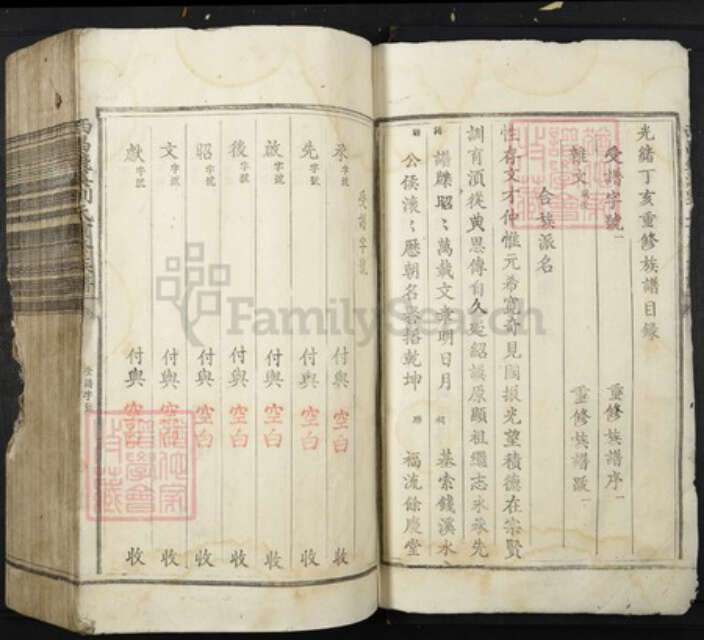 光緒丁亥重修族譜目錄
受譜字號一 重修族譜序一
雜文 重修族譜跋一
合族派名
性存文才仲惟元希寬奇見國振光望積德在宗賢
訓有須從典恩傳自久延紹謨原顯祖繼志永承先
譜牒昭〻萬載文章明日月 基索錢溪水
聯 公侯滾〻歷朝名宦括乾坤 聯 福流餘慶堂
受譜字號
承字號 付與 空白 收
先字號 付與 空白 收
啟字號 付與 空白 收
後字號 付與 空白 收
昭字號 付與 空白 收
文字號 付與 空白 收
獻字號 付與 空白 收
受譜字號
FamilySearch